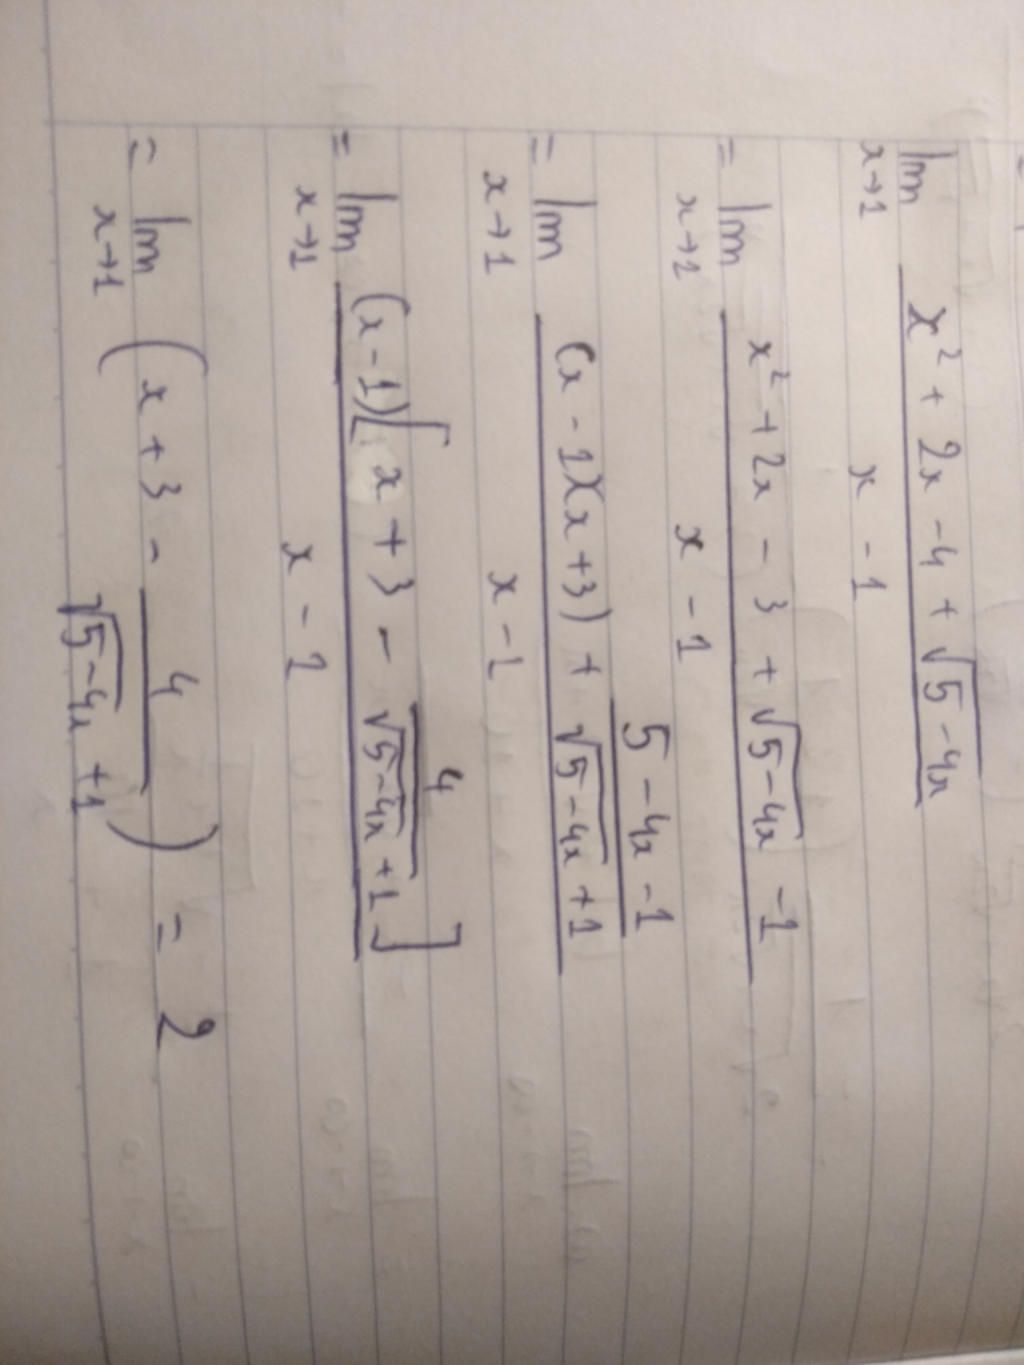 lim x→1 (x² + 2x - 4 + √(5 - 4x)) / (x - 1)
= lim x→1 (x² + 2x - 3 + √(5 - 4x) - 1) / (x - 1)
= lim x→1 ((x - 1)(x + 3) + (5 - 4x - 1) / (√(5 - 4x) + 1)) / (x - 1)
= lim x→1 ((x - 1)[x + 3 - 4 / (√(5 - 4x) + 1)]) / (x - 1)
= lim x→1 (x + 3 - 4 / (√(5 - 4x) + 1)) = 2